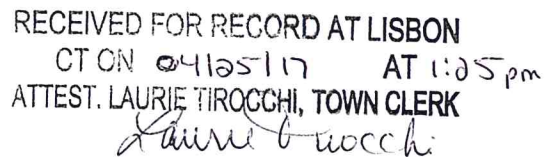 RECEIVED FOR RECORD AT LISBON
CT ON 04/25/17 AT 1:25 pm
ATTEST. LAURIE TIROCCHI, TOWN CLERK
Laurie Tirocchi